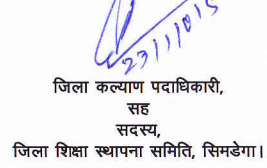 23/11/015
जिला कल्याण पदाधिकारी,
सह
सदस्य,
जिला शिक्षा स्थापना समिति, सिमडेगा।